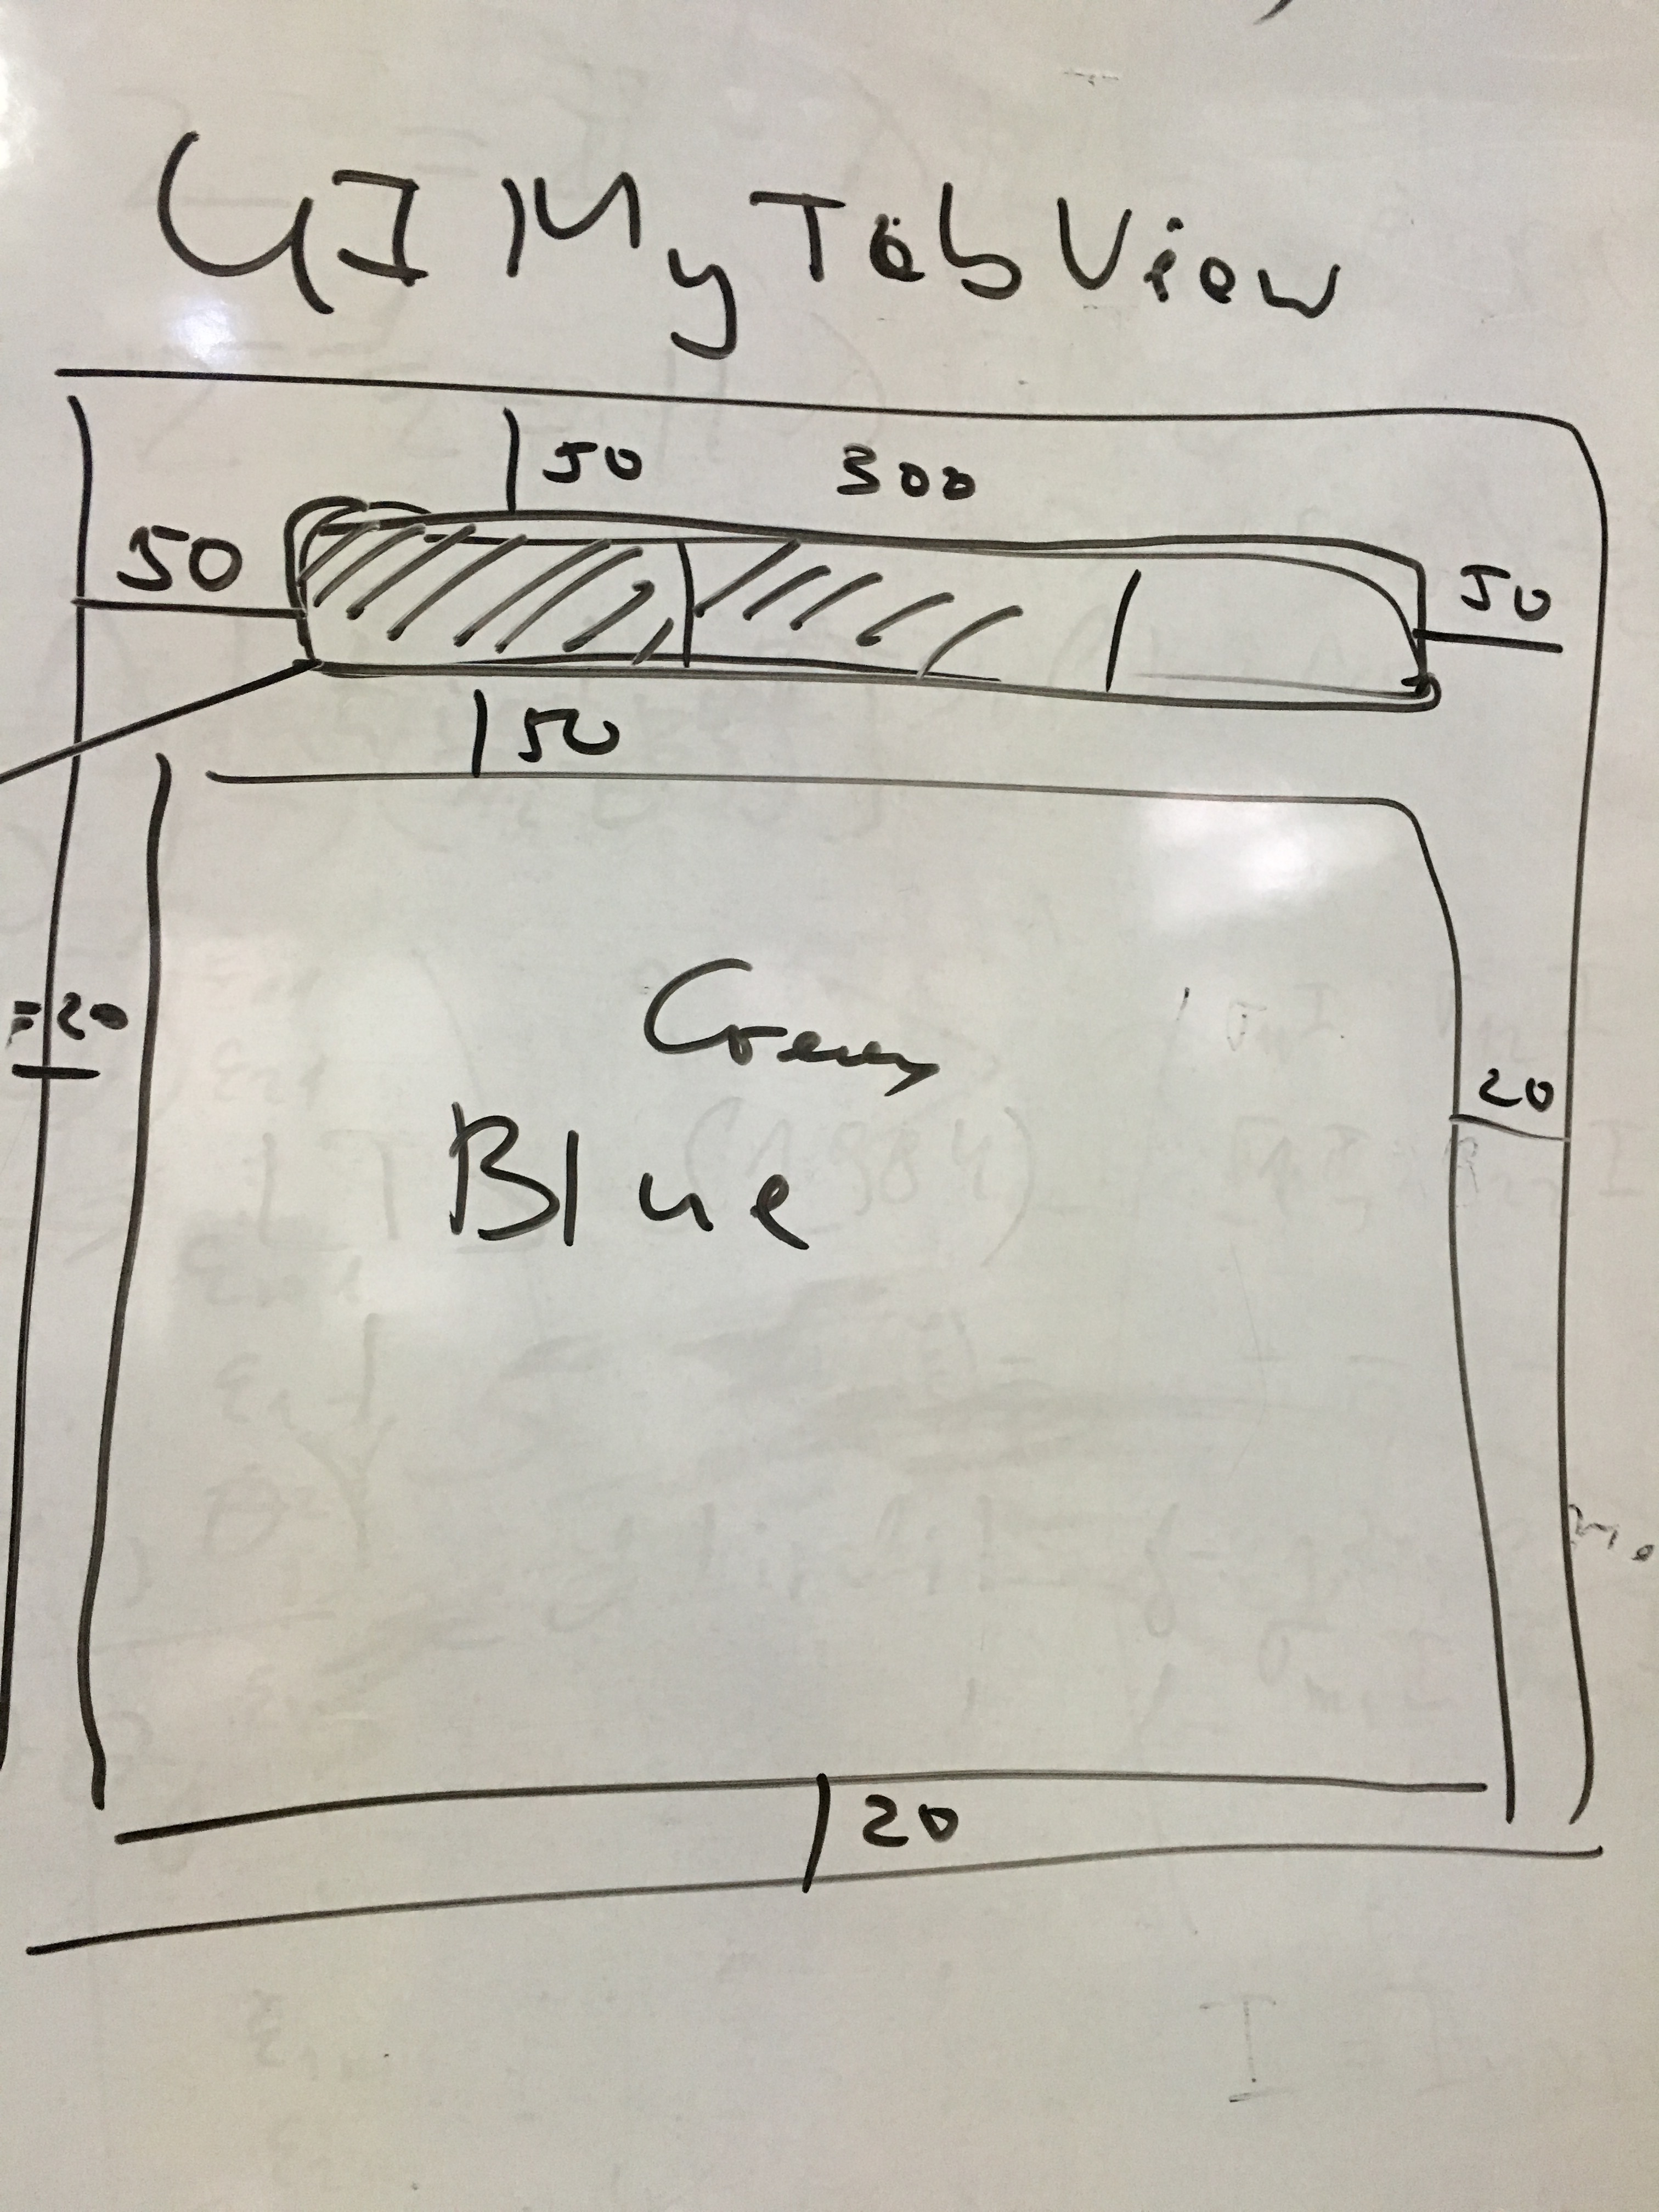 UIMyTabView
50 300
50 50
50
20
20
Green
Blue
20